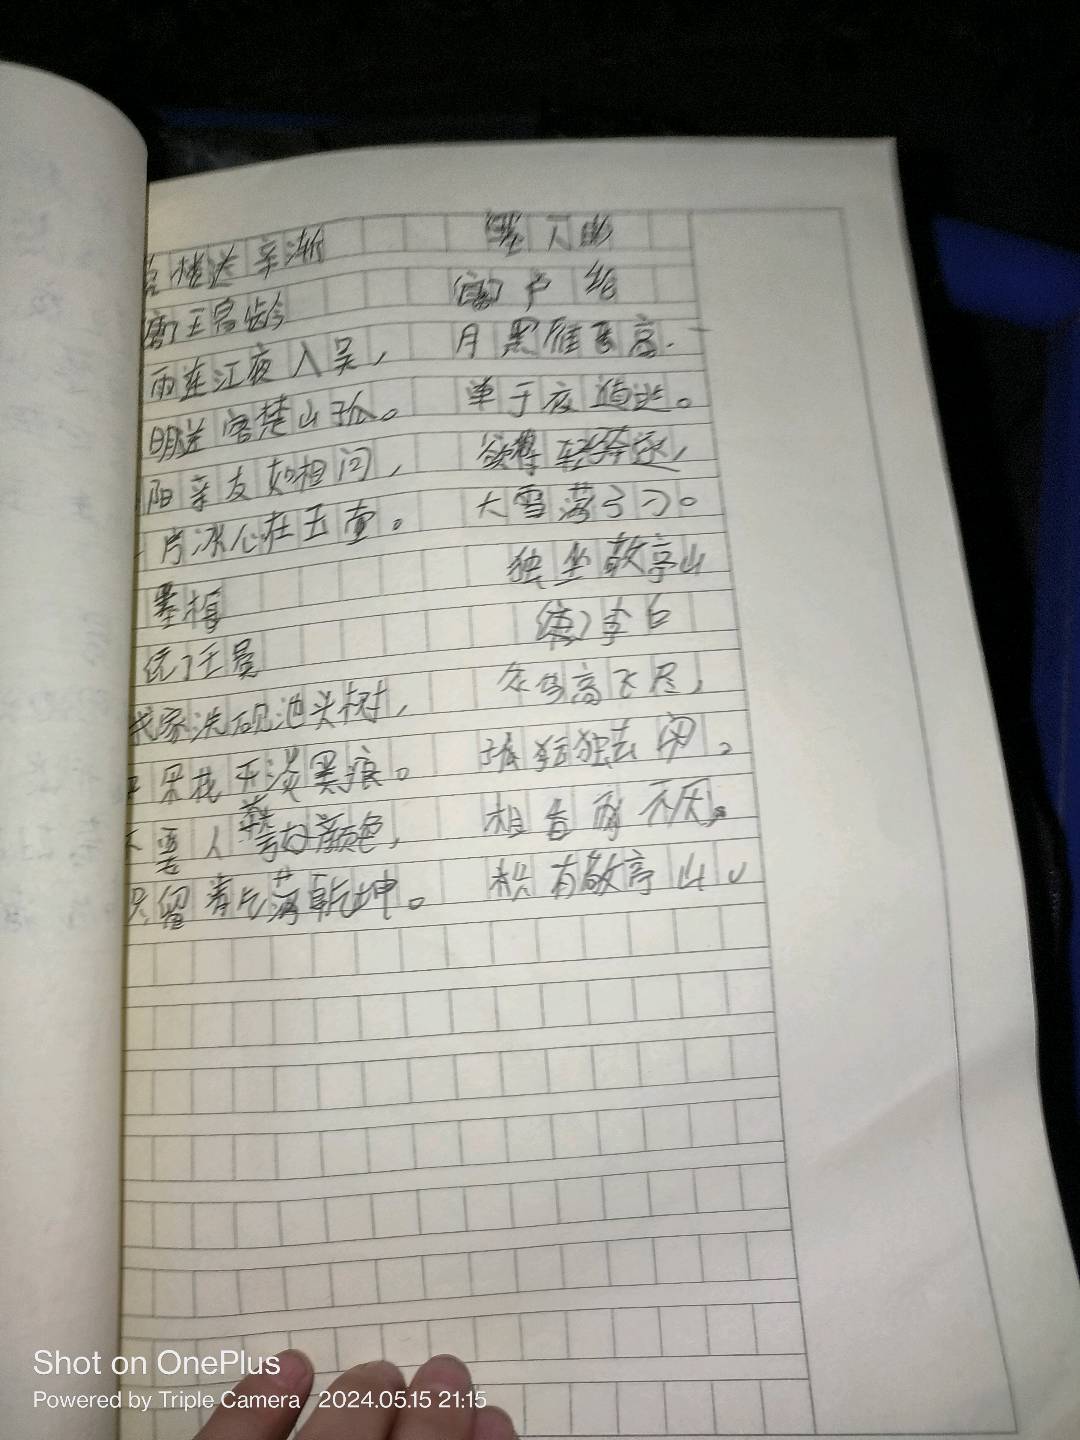 芙楼送辛渐
唐王昌龄
雨连江夜入吴，
明送客楚山孤。
阳亲友如相问，
片冰心在玉壶。
墨梅
元王冕
我家洗砚池头树，
朵朵花开淡墨痕。
不要人夸好颜色，
只留清气满乾坤。
塞下曲
(唐)卢纶
月黑雁飞高.
单于夜遁逃。
欲将轻骑逐,
大雪满弓刀。
独坐敬亭山
(唐)李白
众鸟高飞尽,
孤云独去闲。
相看两不厌,
只有敬亭山
Shot on OnePlus
Powered by Triple Camera 2024.05.15 21:15